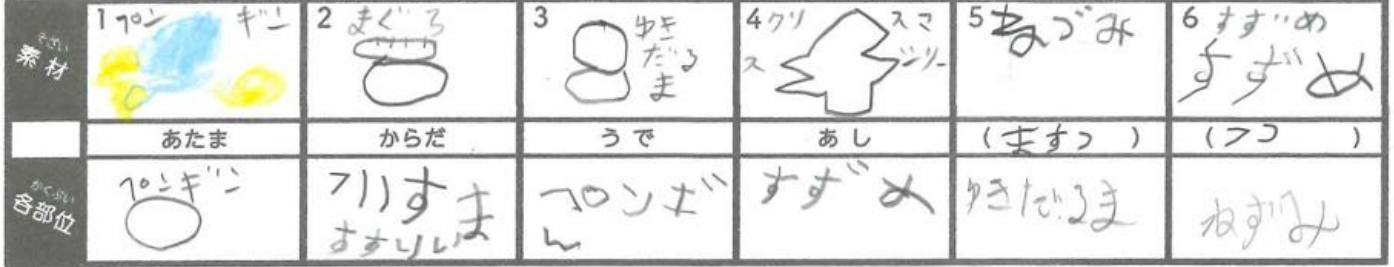 そざい
素材
1 ペンギン
2 まぐろ
3 ゆきだるま
4 クリスマスツリー
5 ねづみ
6 すずめ
すずめ
あたま
からだ
うで
あし
(ますつ)
かくぶい
各部位
ペンギン
ペンギん
すずめ
ゆきだるま
ねずみ